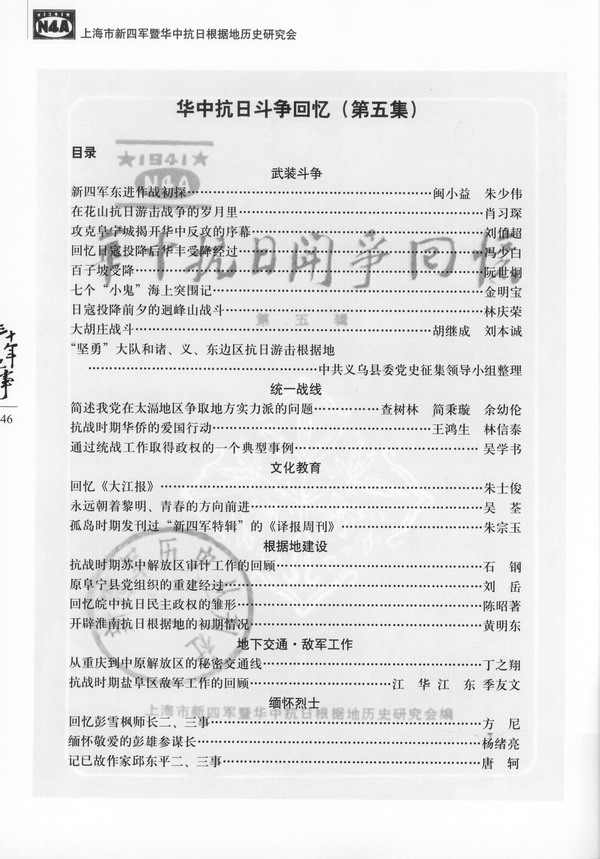 1941
N4A
上海市新四军暨华中抗日根据地历史研究会
华中抗日斗争回忆（第五集）
目录
★1941★
N4A
武装斗争
新四军东进作战初探……闽小益 朱少伟
在花山抗日游击战争的岁月里……肖习琛
攻克阜宁城揭开华中反攻的序幕……刘伯超
回忆日寇投降后华丰受降经过……冯少白
百子坡受降……阮世炯
七个“小鬼”海上突围记……金明宝
日寇投降前夕的迴峰山战斗……林庆荣
第五辑
大胡庄战斗……胡继成 刘本诚
“坚勇”大队和诸、义、东边区抗日游击根据地
……中共义乌县委党史征集领导小组整理
统一战线
简述我党在太滆地区争取地方实力派的问题……查树林 简秉璇 余幼伦
抗战时期华侨的爱国行动……王鸿生 林信泰
通过统战工作取得政权的一个典型事例……吴学书
文化教育
回忆《大江报》……朱士俊
永远朝着黎明、青春的方向前进……吴 荃
孤岛时期发刊过“新四军特辑”的《译报周刊》……朱宗玉
根据地建设
抗战时期苏中解放区审计工作的回顾……石 钢
原阜宁县党组织的重建经过……刘 岳
回忆皖中抗日民主政权的雏形……陈昭著
开辟淮南抗日根据地的初期情况……黄明东
地下交通·敌军工作
从重庆到中原解放区的秘密交通线……丁之翔
抗战时期盐阜区敌军工作的回顾……江 华 江 东 季友文
缅怀烈士
上海市新四军暨华中抗日根据地历史研究会编
回忆彭雪枫师长二、三事……方 尼
缅怀敬爱的彭雄参谋长……杨绪亮
记已故作家邱东平二、三事……唐 轲
三十年
事
46